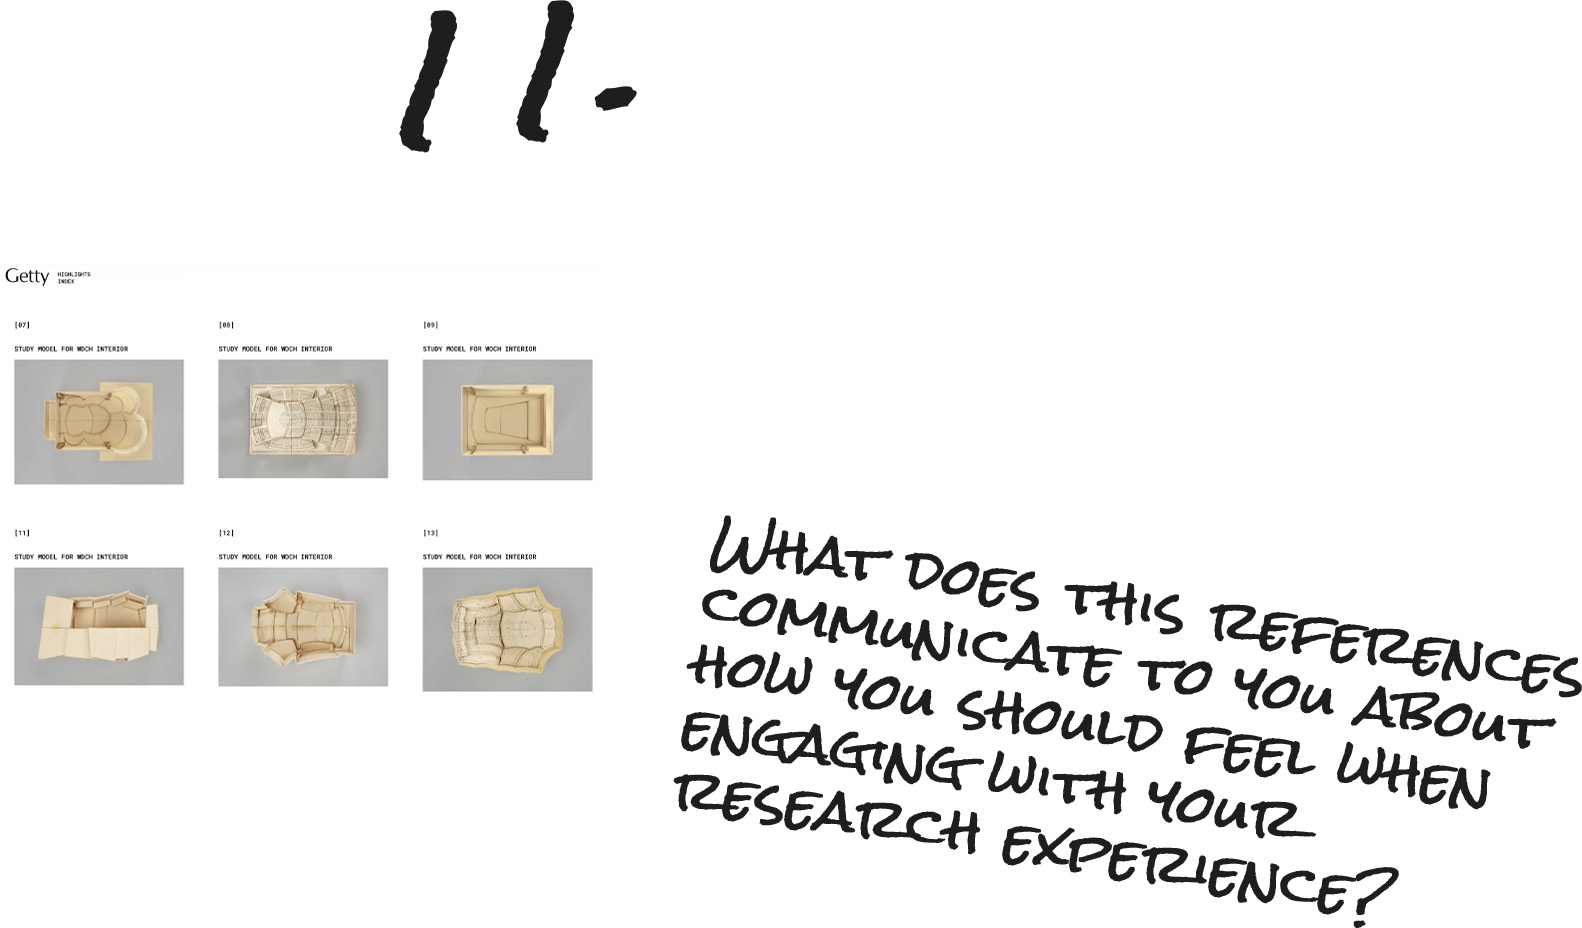 11.
Getty
HIGHLIGHTS
INDEX
[07]
[08]
[09]
STUDY MODEL FOR WDCH INTERIOR
STUDY MODEL FOR WDCH INTERIOR
STUDY MODEL FOR WDCH INTERIOR
[11]
[12]
[13]
STUDY MODEL FOR WDCH INTERIOR
STUDY MODEL FOR WDCH INTERIOR
STUDY MODEL FOR WDCH INTERIOR
WHAT DOES THIS REFERENCES
COMMUNICATE TO YOU ABOUT
HOW YOU SHOULD FEEL WHEN
ENGAGING WITH YOUR
RESEARCH EXPERIENCE?